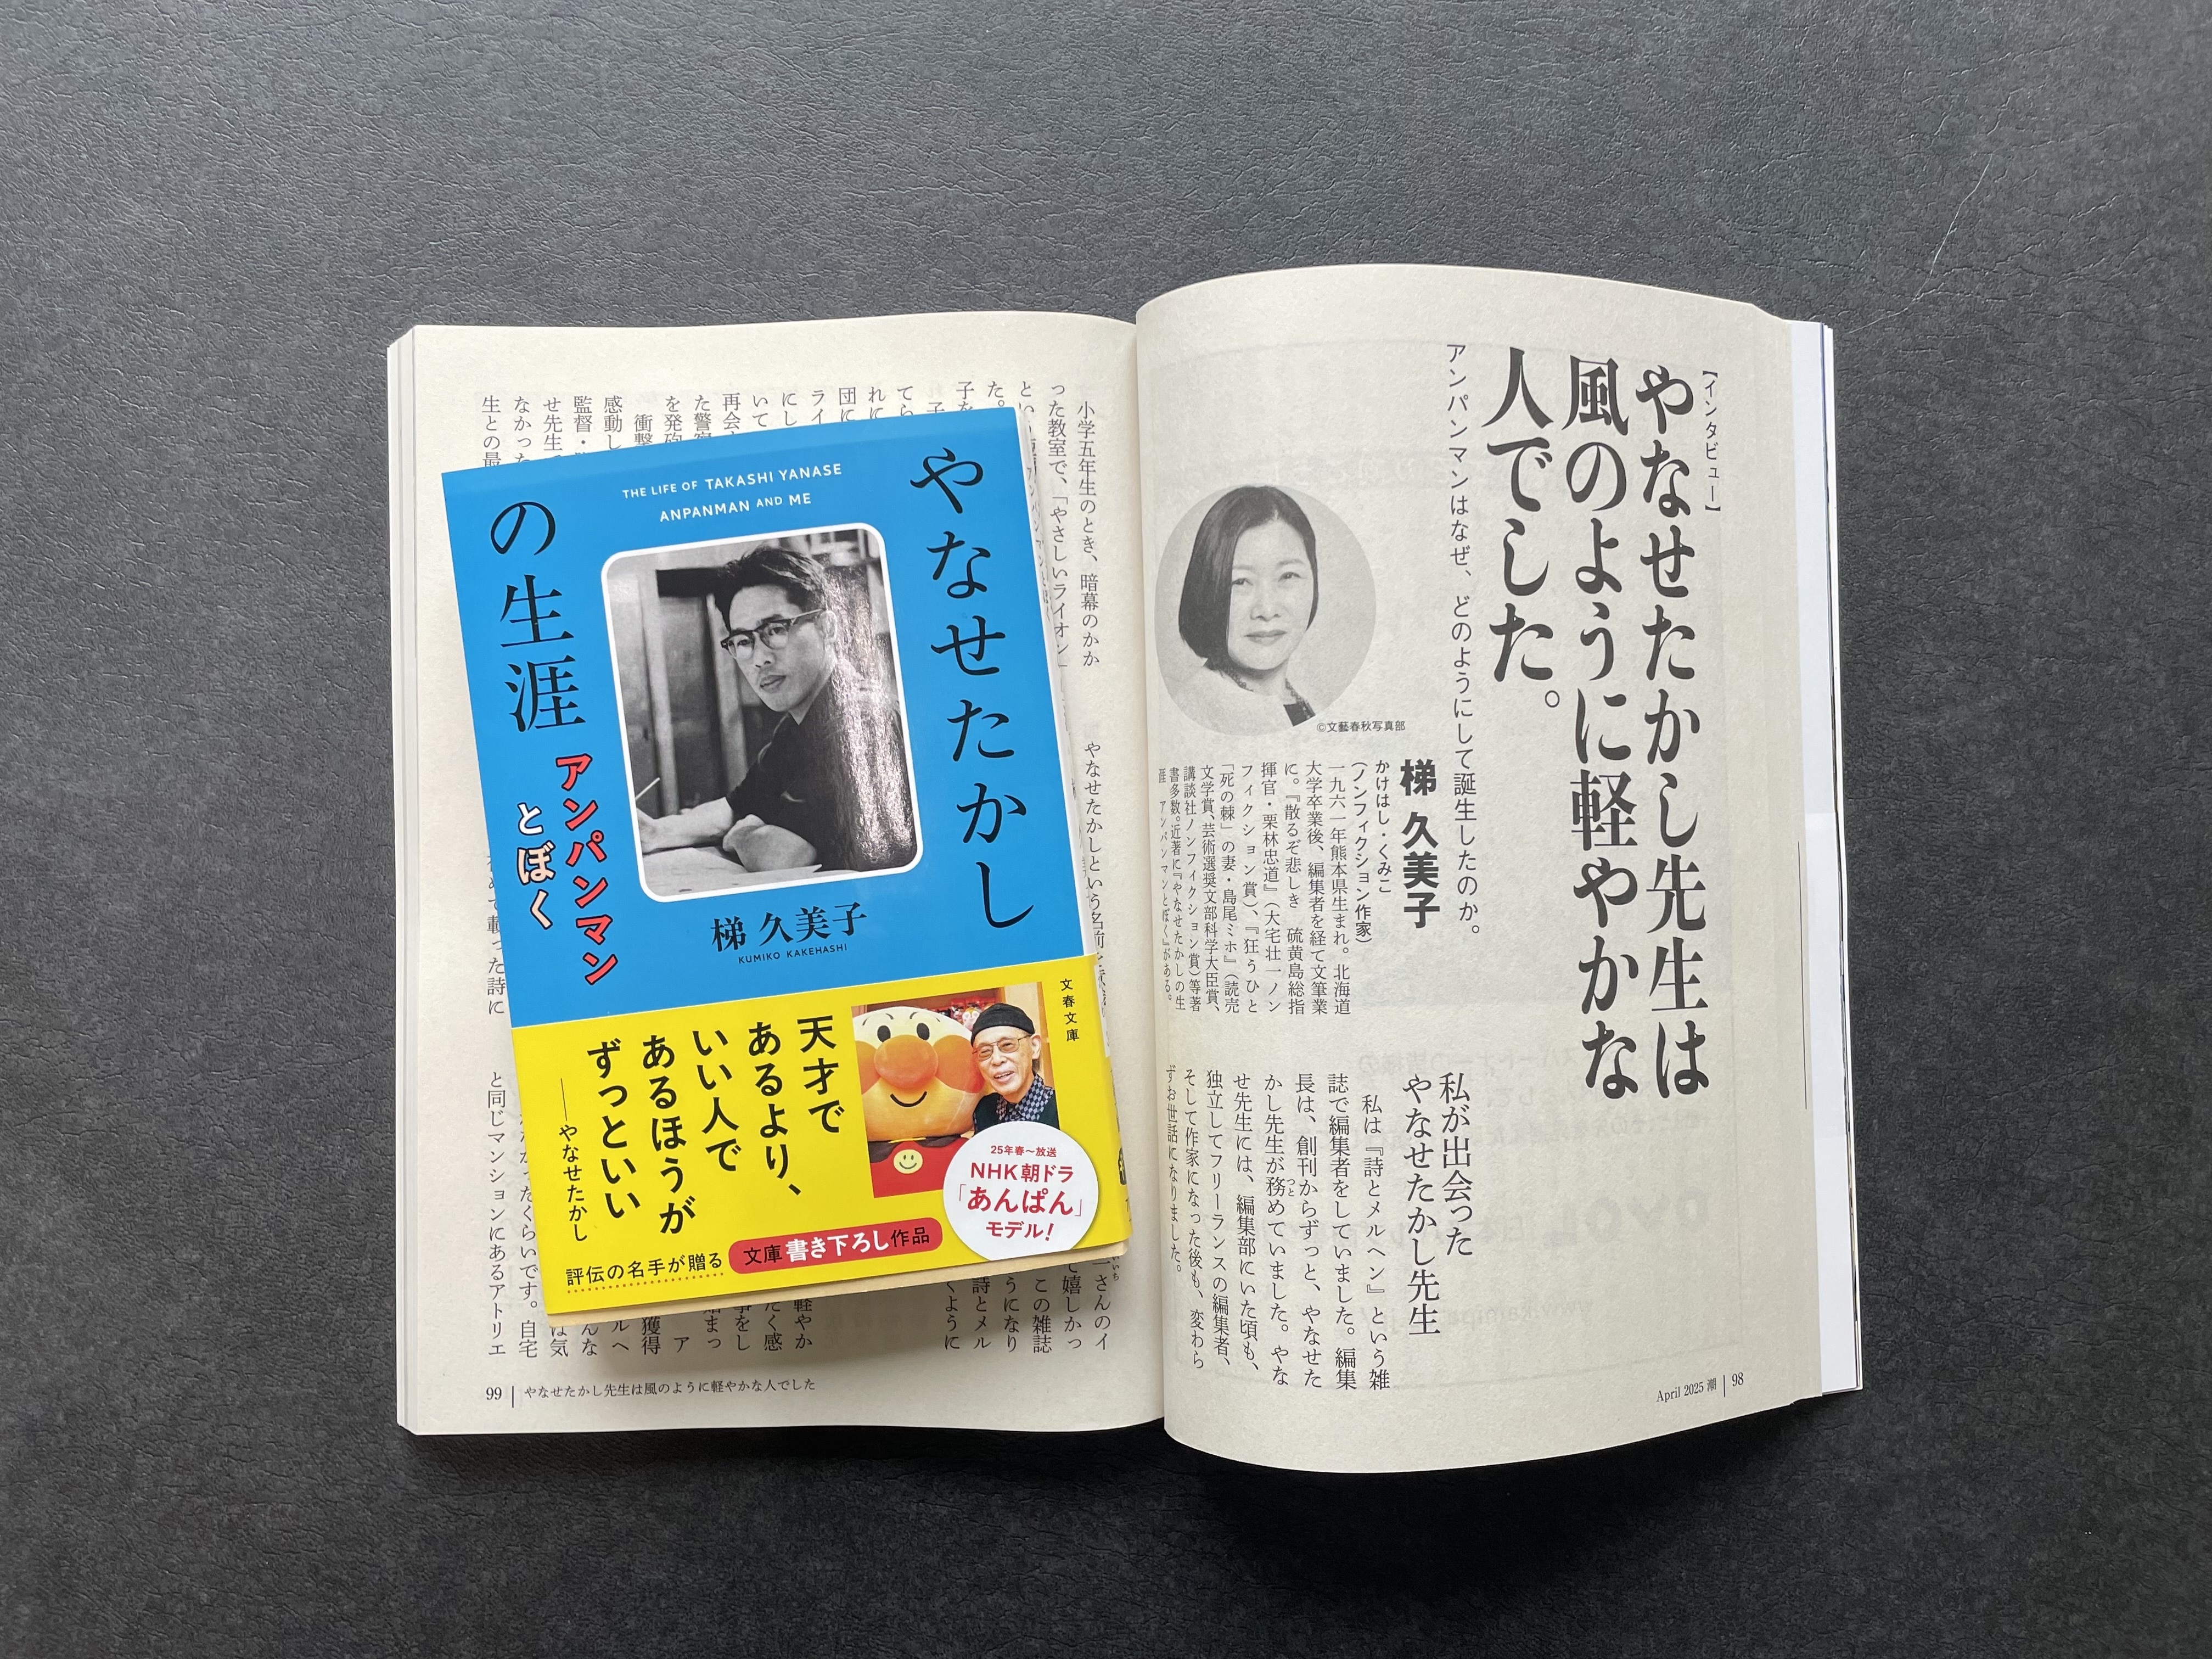 【インタビュー】
やなせたかし先生は
風のように軽やかな
人でした。
アンパンマンはなぜ、どのようにして誕生したのか。
©文藝春秋写真部
梯 久美子
かけはし・くみこ
(ノンフィクション作家)
一九六一年熊本県生まれ。北海道
大学卒業後、編集者を経て文筆業
に。『散るぞ悲しき 硫黄島総指
揮官・栗林忠道』(大宅壮一ノン
フィクション賞)、『狂うひと
「死の棘」の妻・島尾ミホ』(読売
文学賞、芸術選奨文部科学大臣賞、
講談社ノンフィクション賞)等著
書多数。近著に『やなせたかしの生
涯 アンパンマンとぼく』がある。
私が出会った
やなせたかし先生
私は『詩とメルヘン』という雑
誌で編集者をしていました。編集
長は、創刊からずっと、やなせた
かし先生が務めていました。やな
つと
せ先生には、編集部にいた頃も、
独立してフリーランスの編集者、
そして作家になった後も、変わら
ずお世話になりました。
April 2025 潮 | 98
小学五年生のとき、暗幕のかか
った教室で、「やさしいライオン」
とい
た。
子を
てら
れに
団に
ライ
にし
いて
再会
た警
を発砲
衝撃
感動し
監督・
せ先生
なかった
生との最
やなせたかしという名前
て載った詩に
と同じマンションにあるアトリエ
くらいです。自宅
は気
さんのイ
て嬉しかっ
この雑誌
うになり
詩とメル
くように
軽やか
たく感
事をし
始まっ
ア
獲得
ルヘ
んな
99 | やなせたかし先生は風のように軽やかな人でした
やなせたかし
の生涯
アンパンマン
とぼく
THE LIFE OF TAKASHI YANASE
ANPANMAN AND ME
梯 久美子
KUMIKO KAKEHASHI
文春文庫
天才で
あるより、
いい人で
あるほうが
ずっといい
——やなせたかし
25年春〜放送
NHK朝ドラ
「あんぱん」
モデル!
評伝の名手が贈る 文庫書き下ろし作品